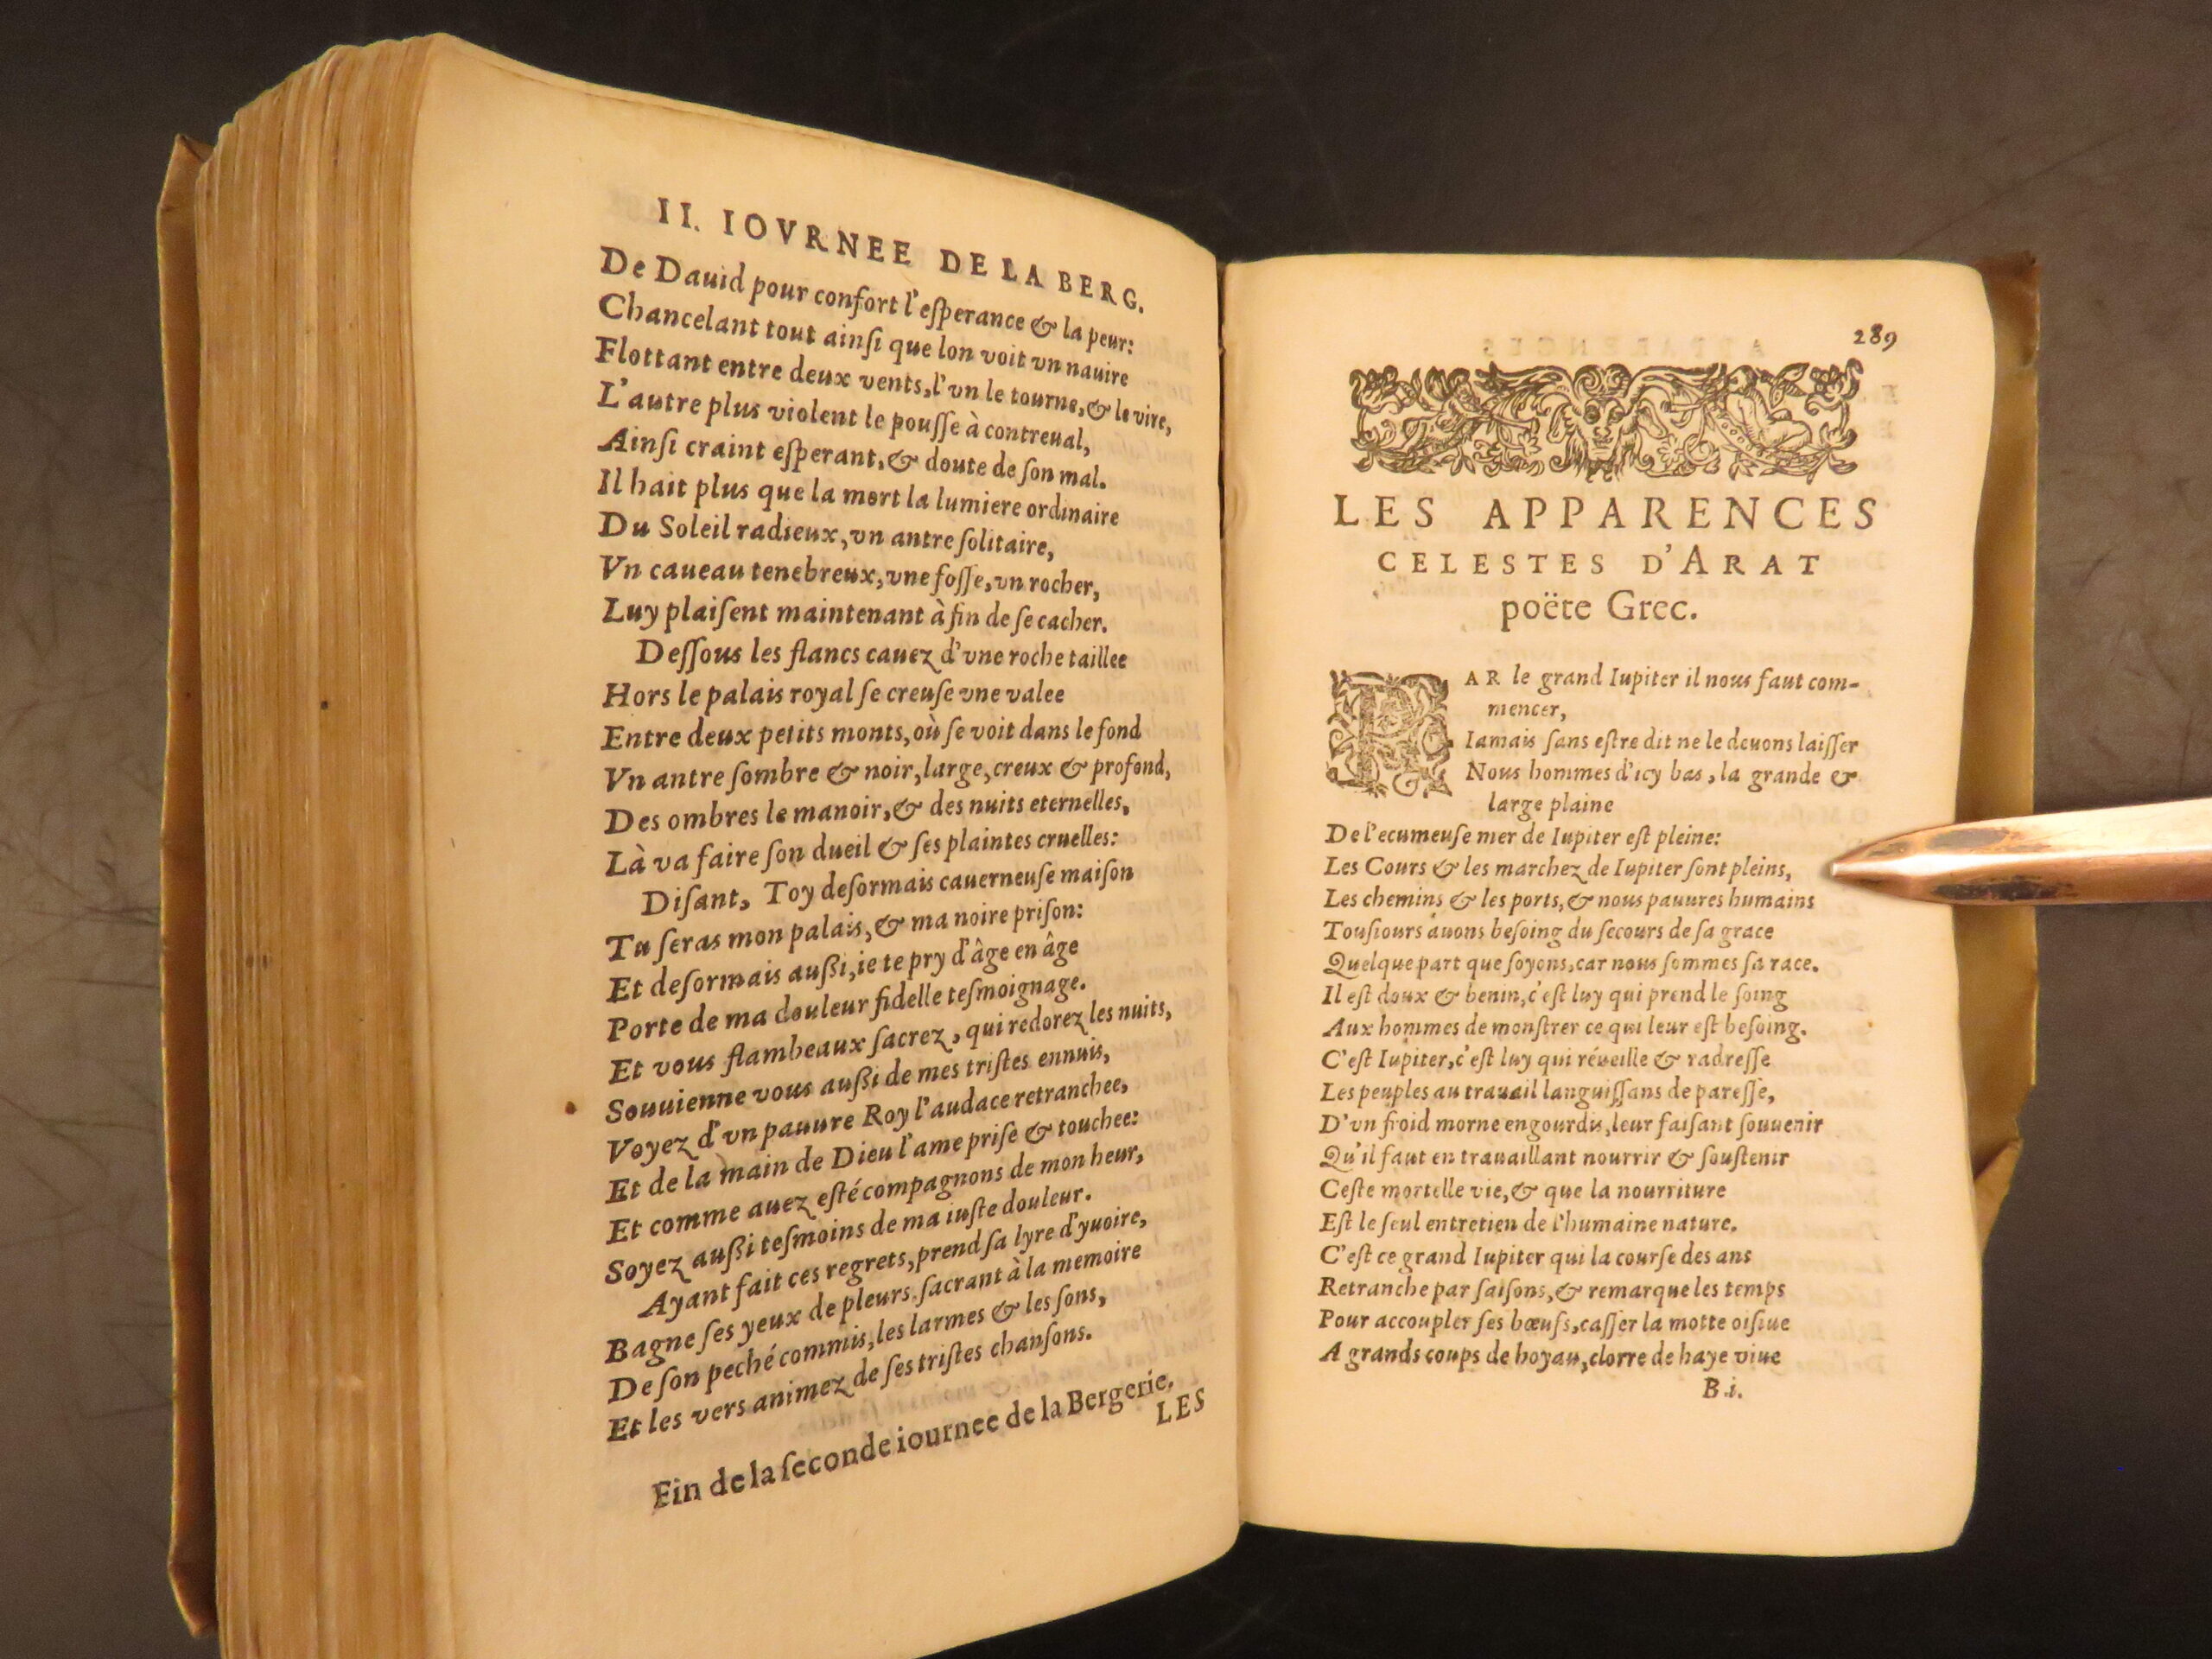 II. IOVRNEE DE LA BERG.
De Dauid pour confort l'eſperance & la peur:
Chancelant tout ainſi que lon voit vn nauire
Flottant entre deux vents, l'vn le tourne, & le vire,
L'autre plus violent le pouſſe à contreual,
Ainſi craint eſperant, & doute de ſon mal.
Il hait plus que la mort la lumiere ordinaire
Du Soleil radieux, vn antre ſolitaire,
Vn caueau tenebreux, vne foſſe, vn rocher,
Luy plaiſent maintenant à fin de ſe cacher.
Deſſous les flancs cauez d'vne roche taillee
Hors le palais royal ſe creuſe vne valee
Entre deux petits monts, où ſe voit dans le fond
Vn antre ſombre & noir, large, creux & profond,
Des ombres le manoir, & des nuits eternelles,
Là va faire ſon dueil & ſes plaintes cruelles:
Diſant, Toy deſormais cauerneuſe maiſon
Tu ſeras mon palais, & ma noire priſon:
Et deſormais auſſi, ie te pry d'âge en âge
Porte de ma douleur fidelle teſmoignage.
Et vous flambeaux ſacrez, qui redorez les nuits,
Souuienne vous auſſi de mes triſtes ennuis,
Voyez d'vn pauure Roy l'audace retranchee,
Et de la main de Dieu l'ame priſe & touchee:
Et comme auez eſté compagnons de mon heur,
Soyez auſſi teſmoins de ma iuſte douleur.
Ayant fait ces regrets, prend ſa lyre d'yuoire,
Bagne ſes yeux de pleurs. ſacrant à la memoire
De ſon peché commis, les larmes & les ſons,
Et les vers animez de ſes triſtes chanſons.
Fin de la ſeconde iournee de la Bergerie.
LES
289
LES APPARENCES
CELESTES D'ARAT
poëte Grec.
PAR le grand Iupiter il nous faut com-
mencer,
Iamais ſans eſtre dit ne le deuons laiſſer
Nous hommes d'icy bas, la grande &
large plaine
De l'ecumeuſe mer de Iupiter eſt pleine:
Les Cours & les marchez de Iupiter ſont pleins,
Les chemins & les ports, & nous pauures humains
Touſiours auons beſoing du ſecours de ſa grace
Quelque part que ſoyons, car nous ſommes ſa race.
Il eſt doux & benin, c'eſt luy qui prend le ſoing
Aux hommes de monſtrer ce qui leur eſt beſoing.
C'eſt Iupiter, c'eſt luy qui réueille & radreſſe
Les peuples au trauail languiſſans de pareſſe,
D'vn froid morne engourdis, leur faiſant ſouuenir
Qu'il faut en trauaillant nourrir & ſouſtenir
Ceſte mortelle vie, & que la nourriture
Eſt le ſeul entretien de l'humaine nature.
C'eſt ce grand Iupiter qui la courſe des ans
Retranche par ſaiſons, & remarque les temps
Pour accoupler ſes bœufs, caſſer la motte oiſiue
A grands coups de hoyau, clorre de haye viue
B.i.